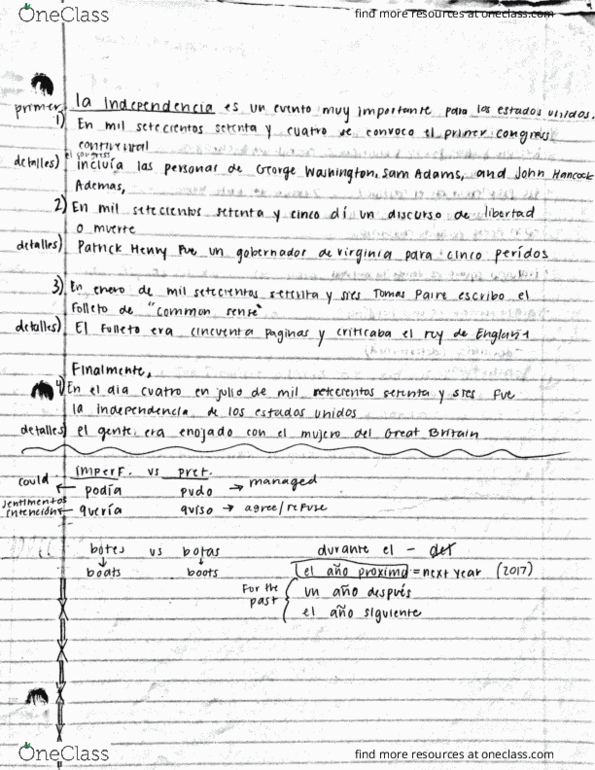 OneClass
find more resources at oneclass.com
primer la Independencia es un evento muy importante para los estados unidos.
1) En mil setecientos setenta y cuatro se convoco el primer congres
continental
detalles) el congress incluía las personas de George Washington, Sam Adams, and John Hancock
Ademas,
2) En mil setecientos setenta y cinco dí un discurso de libertad
o muerte
detalles) Patrick Henry fue un gobernador de virginia para cinco perídos
3) En enero de mil setecientos setenta y sies Tomas Paire escribo el
folleto de "common sense"
detalles) El folleto era cincuenta paginas y criticaba el rey de England
Finalmente,
4) En el dia cuatro en julio de mil setecientos setenta y sies fue
la independencia de los estados unidos
detalles) el gente, era enojado con el mujero del Great Britain
imperf. vs pret.
could ← podía pudo → managed
sentimentos intención ← quería quiso → agree/refuse
botes vs botas durante el - det
boats boots el año proximo = next year (2017)
For the past un año después
el año siguiente
OneClass
find more resources at oneclass.com